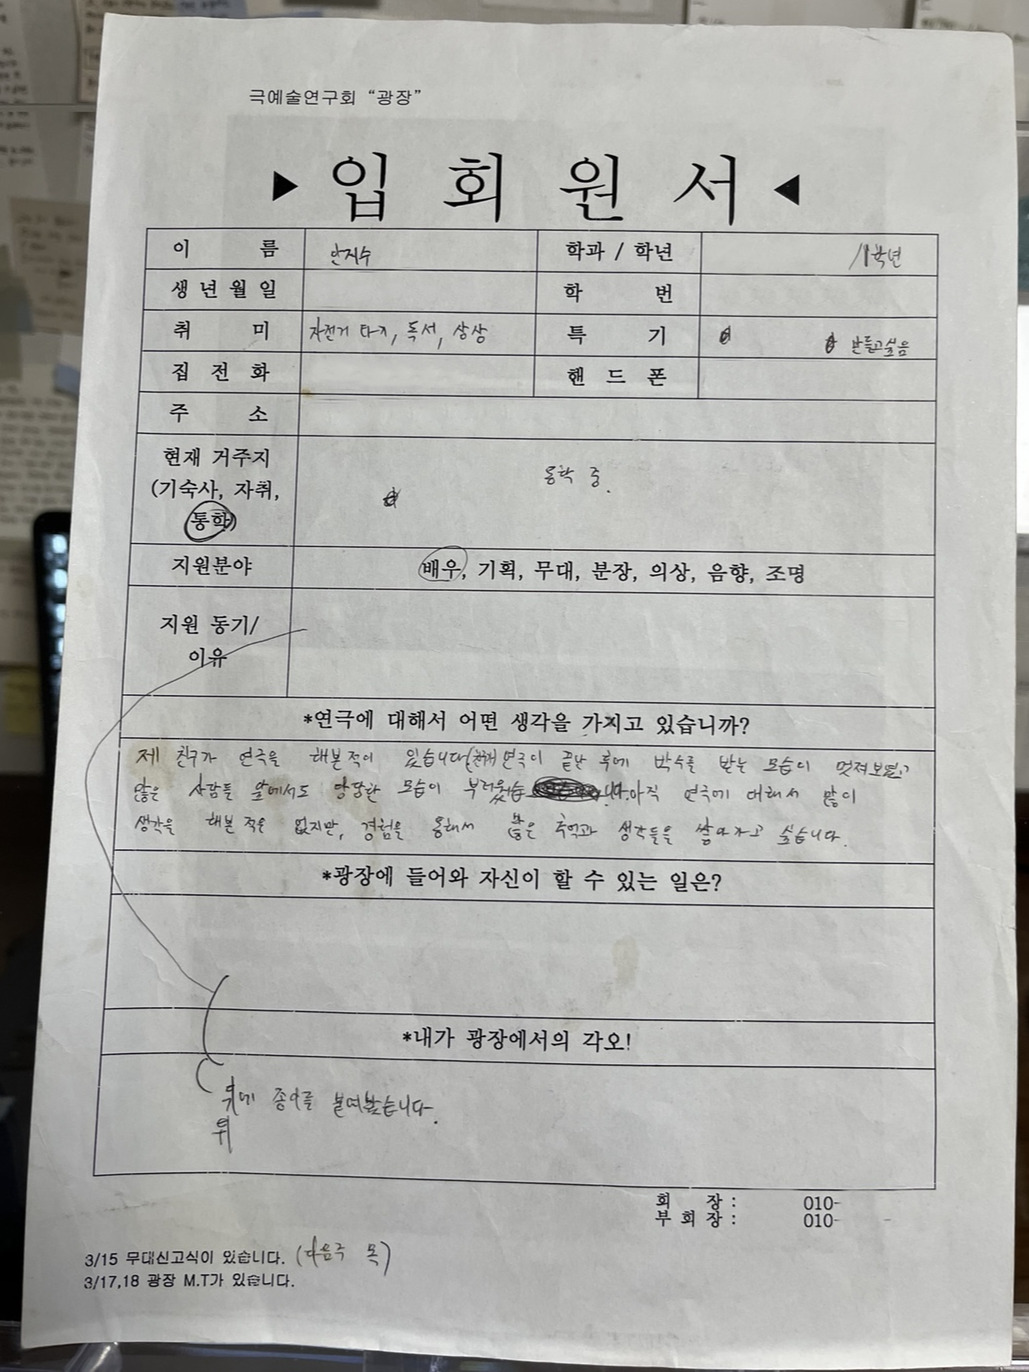 극예술연구회 “광장”
▶ 입 회 원 서 ◀
이 름 안지수 학과 / 학년 /1학년
생 년 월 일 학 번
취 미 자전거 타기, 독서, 상상 특 기 만들고싶음
집 전 화 핸 드 폰
주 소
현재 거주지
(기숙사, 자취,
통학)
통학 중.
지원분야 배우, 기획, 무대, 분장, 의상, 음향, 조명
지원 동기/
이유
*연극에 대해서 어떤 생각을 가지고 있습니까?
제 친구가 연극을 해본적이 있습니다 연극이 끝난 후에 박수를 받는 모습이 멋져보였고
많은 사람들 앞에서도 당당한 모습이 부러웠습니다. 아직 연극에 대해서 많이
생각을 해본 적은 없지만, 경험을 통해서 많은 추억과 생각들을 쌓아가고 싶습니다.
*광장에 들어와 자신이 할 수 있는 일은?
*내가 광장에서의 각오!
뒤에 종이를 붙여봤습니다.
뒤
회 장 : 010-
부 회 장 : 010-
3/15 무대신고식이 있습니다. (다음주 목)
3/17,18 광장 M.T가 있습니다.